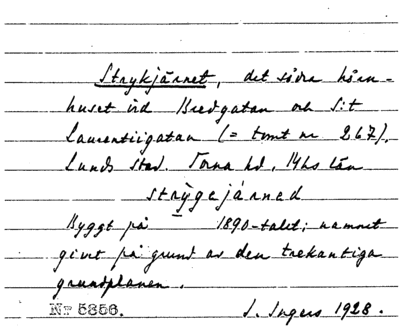 Strykjärnet, det södra hörn-
huset vid Bredgatan och S:t
Laurentiigatan (= tomt nr 267).
Lunds stad. Torna hd, Mhs län
strӯgejárned
Byggt på 1890-talet; namnet
givet på grund av den trekantiga
grundplanen.
No 5856. I. Ingers 1928.